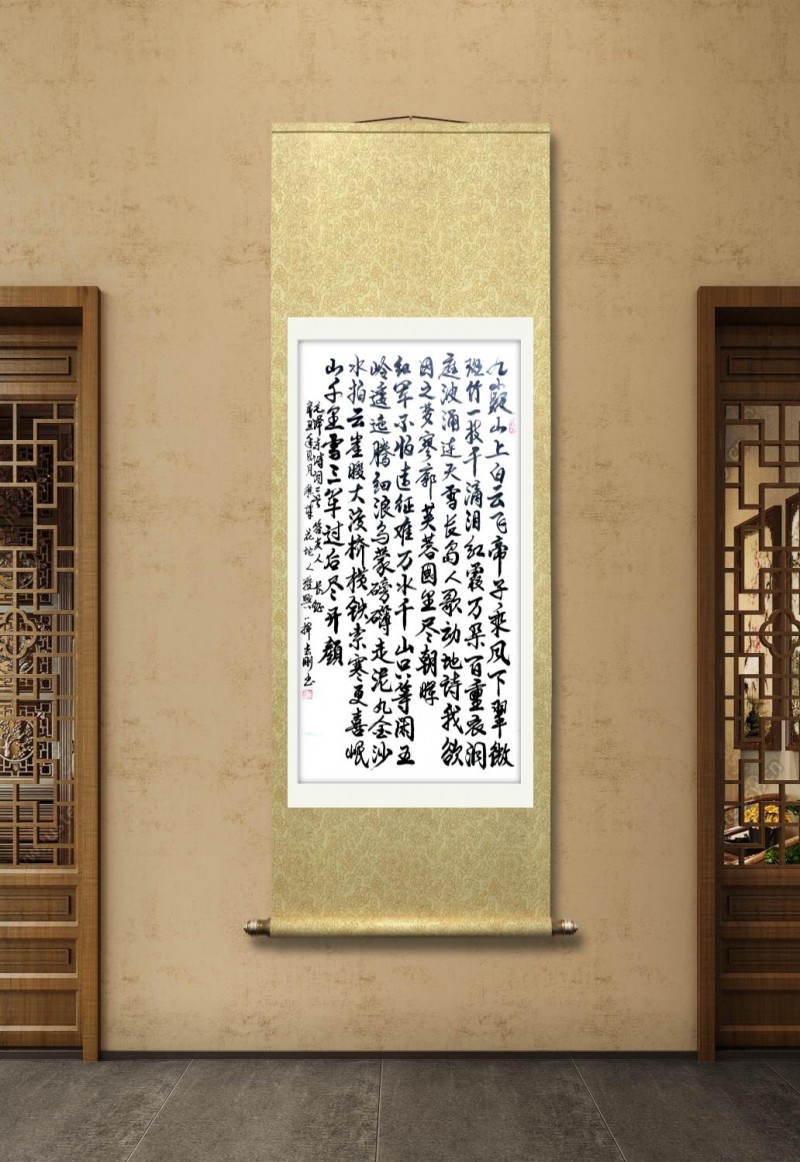 九嶷山上白云飞帝子乘风下翠微
斑竹一枝千滴泪红霞万朵百重衣洞
庭波涌连天雪长岛人歌动地诗我欲
因之梦寥廓芙蓉国里尽朝晖
红军不怕远征难万水千山只等闲五
岭逶迤腾细浪乌蒙磅礴走泥丸金沙
水拍云崖暖大渡桥横铁索寒更喜岷
山千里雪三军过后尽开颜
毛泽东诗词二首答友人 长征
辛丑年 月 花地人 挥 刚书